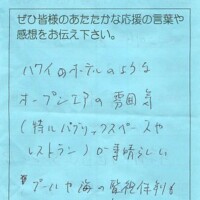 ぜひ皆様のあたたかな応援の言葉や
感想をお伝え下さい。
ハワイのホテルのような
オープンエアの雰囲気
(特にパブリックスペースや
レストラン)が素晴らしい
プールや海の監視体制も